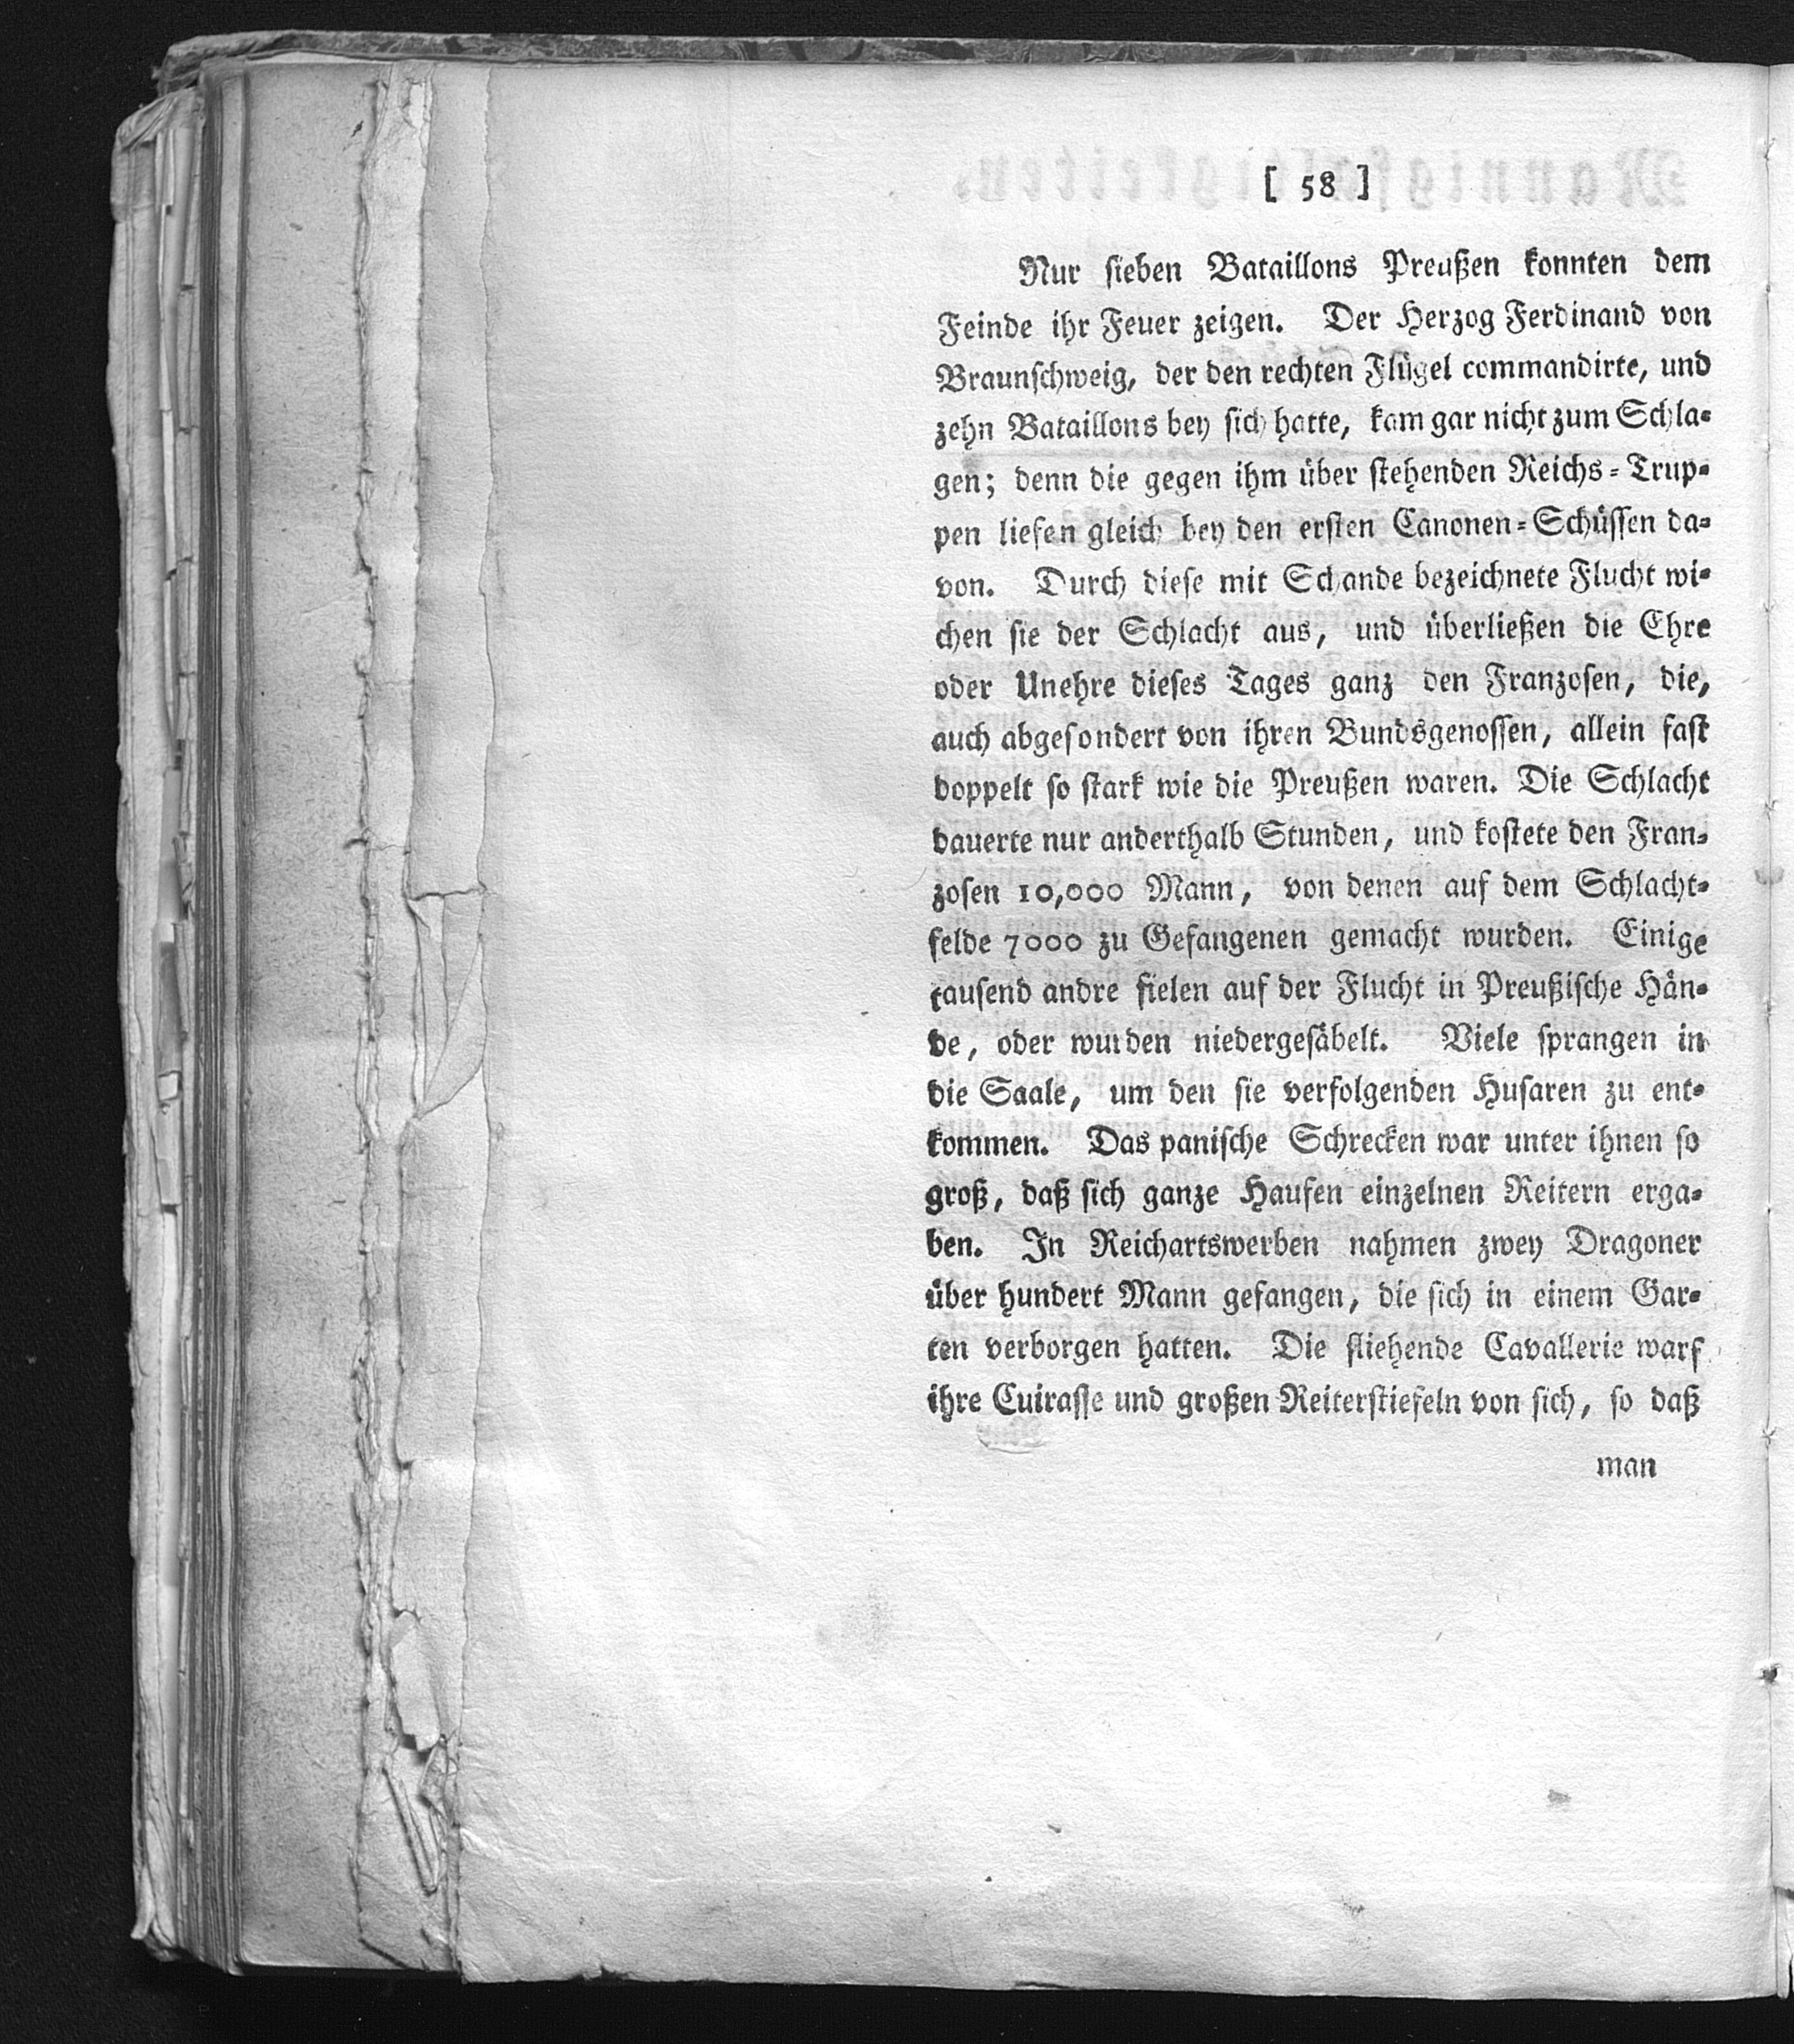 [ 58 ]
Nur sieben Bataillons Preußen konnten dem
Feinde ihr Feuer zeigen. Der Herzog Ferdinand von
Braunschweig, der den rechten Flügel commandirte, und
zehn Bataillons bey sich hatte, kam gar nicht zum Schla-
gen; denn die gegen ihm über stehenden Reichs-Trup-
pen liefen gleich bey den ersten Canonen-Schüssen da-
von. Durch diese mit Schande bezeichnete Flucht wi-
chen sie der Schlacht aus, und überließen die Ehre
oder Unehre dieses Tages ganz den Franzosen, die,
auch abgesondert von ihren Bundsgenossen, allein fast
doppelt so stark wie die Preußen waren. Die Schlacht
dauerte nur anderthalb Stunden, und kostete den Fran-
zosen 10,000 Mann, von denen auf dem Schlacht-
felde 7000 zu Gefangenen gemacht wurden. Einige
tausend andre fielen auf der Flucht in Preußische Hän-
de, oder wurden niedergesäbelt. Viele sprangen in
die Saale, um den sie verfolgenden Husaren zu ent-
kommen. Das panische Schrecken war unter ihnen so
groß, daß sich ganze Haufen einzelnen Reitern erga-
ben. In Reichartswerben nahmen zwey Dragoner
über hundert Mann gefangen, die sich in einem Gar-
ten verborgen hatten. Die fliehende Cavallerie warf
ihre Cuirasse und großen Reiterstiefeln von sich, so daß
man